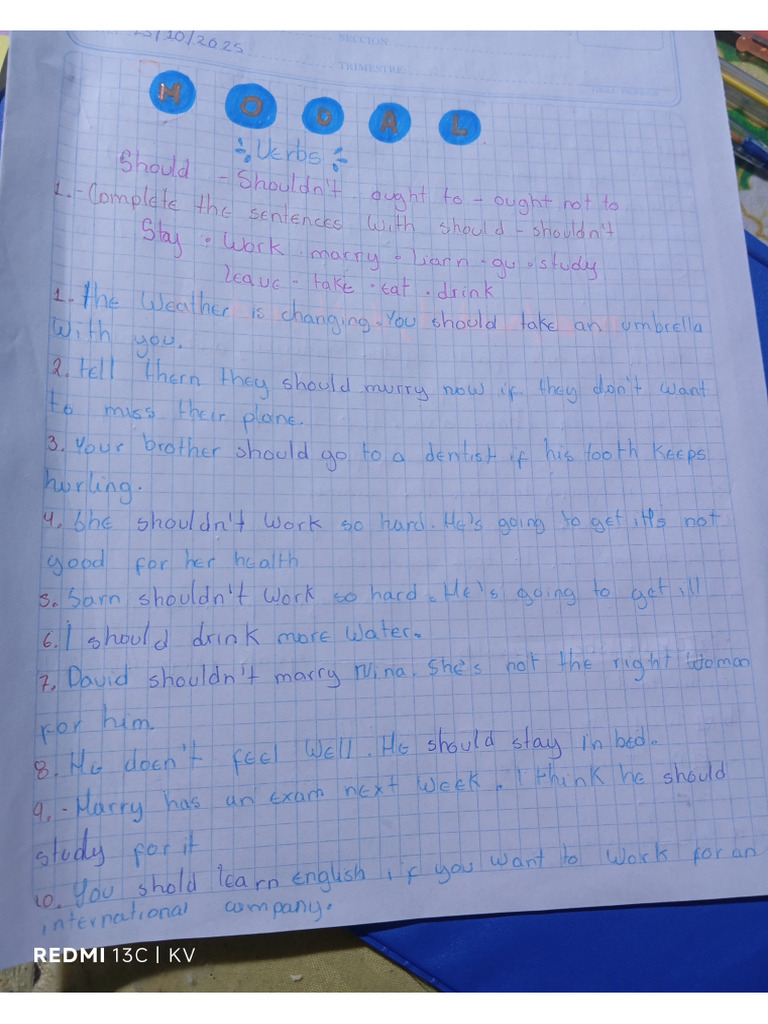 15/10/2025
SECCIÓN
TRIMESTRE
M O D A L
Verbs
Should - Shouldn't ought to - ought not to
1.- Complete the sentences with should - shouldn't
Stay • Work • marry • learn • go • study
leave - take • eat • drink
1. the Weather is changing. You should take an umbrella
With you.
2. tell them they should murry now if they don't want
to miss their plane.
3. Your brother should go to a dentist if his tooth keeps
hurling.
4. She shouldn't work so hard. He's going to get it's not
good for her health
5. Sam shouldn't work so hard. He's going to get ill
6. I should drink more water.
7. David shouldn't marry Nina. She's not the right woman
for him.
8. He doen't feel well. He should stay in bed.
9.- Harry has an exam next week. I think he should
study for it
10. You shold learn english if you want to work for an
international company.
REDMI 13C | KV